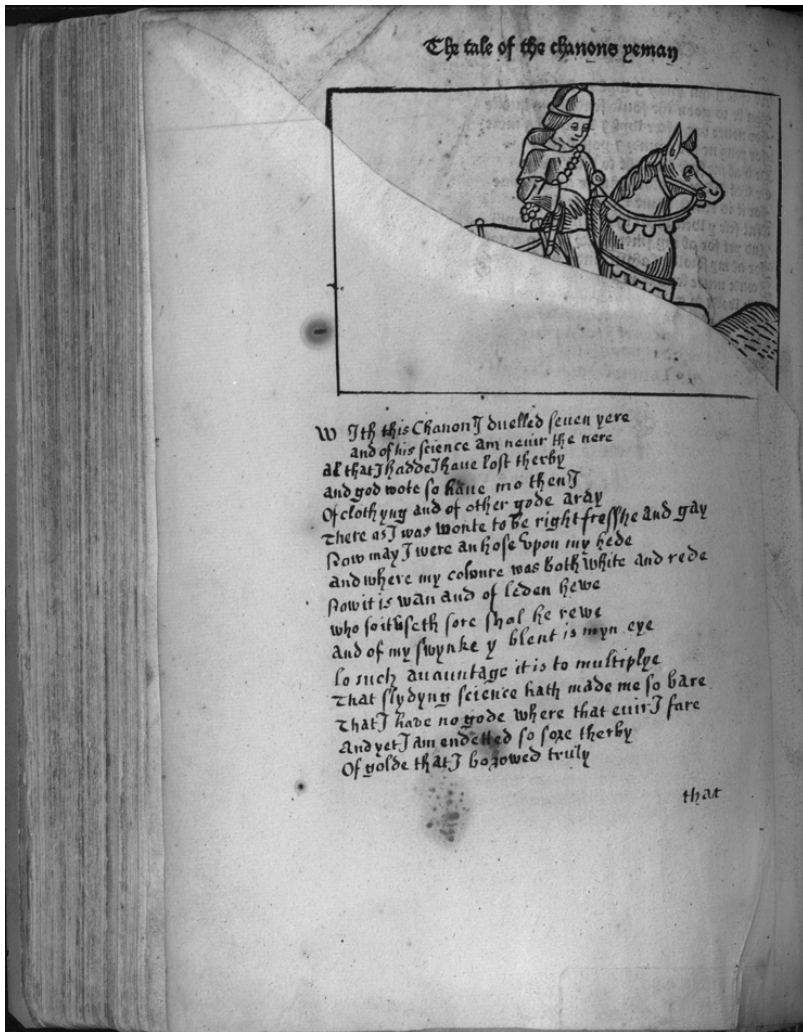 The tale of the chanons yeman
WIth this Chanon I duelled seuen yere
and of his science am neuir the nere
al that I hadde I haue lost therby
and god wote so haue mo then I
Of clothyng and of other gode aray
There as I was wonte to be right fresshe and gay
Now may I were an hose vpon my hede
and where my coloure was both white and rede
Now it is wan and of leden hewe
who so it vseth sore shal he rewe
and of my swynke y blent is myn eye
lo such auauntage it is to multiplye
That slydyng science hath made me so bare
That I haue no gode where that euir I fare
and yet I am endetted so sore therby
Of golde that I borowed truly
that